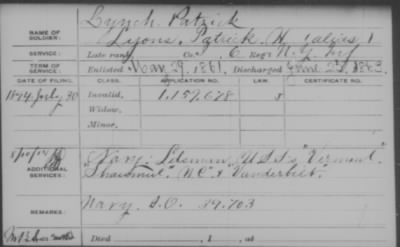 NAME OF SOLDIER: Lynch, Patrick
Lyons, Patrick (H. )
SERVICE: Late rank, Co. C, Reg't N.Y. Inf
TERM OF SERVICE: Enlisted 29, 1861, Discharged June 1863
DATE OF FILING. CLASS. APPLICATION NO. LAW. CERTIFICATE NO.
1894 July 30 Invalid, 1,157,678
Widow,
Minor,
ADDITIONAL SERVICES: Navy: Ldsman, U.S.S.'s "Vermont"
"Shawmut," "N.C." & Vanderbilt.
REMARKS: Navy S.C. 29,703
Died , 1 , at